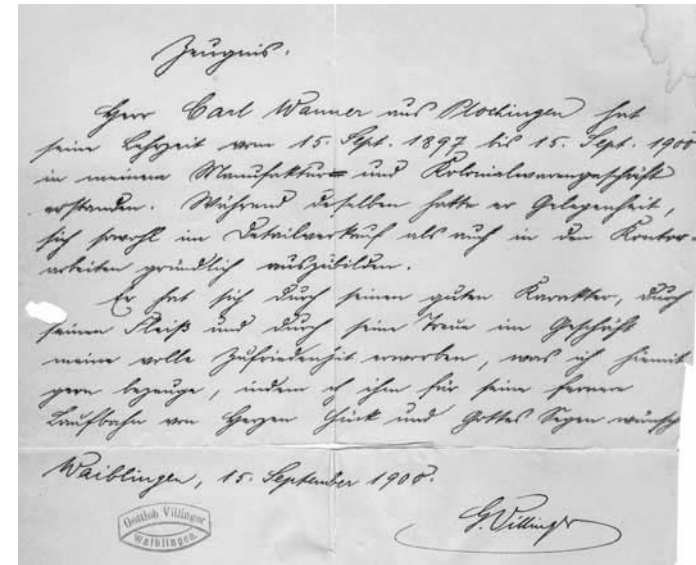 Zeugnis.
Herr Carl Wanner aus Plochingen hat
seine Lehrzeit vom 15. Sept. 1897 bis 15. Sept. 1900
in meinem Manufaktur- und Kolonialwarengeschäft
erstanden. Während derselben hatte er Gelegenheit,
sich sowohl im Detailverkauf als auch in den Kontor-
arbeiten gründlich auszubilden.
Er hat sich durch seinen guten Karakter, durch
seinen Fleiß und durch seine Treue im Geschäft
meine volle Zufriedenheit erworben, was ich hiemit
gern bezeuge, indem ich ihm für seine fernere
Laufbahn von Herzen Glück und Gottes Segen wünsche
Waiblingen, 15. September 1900.
Gottlob Villinger
Waiblingen.
G. Villinger